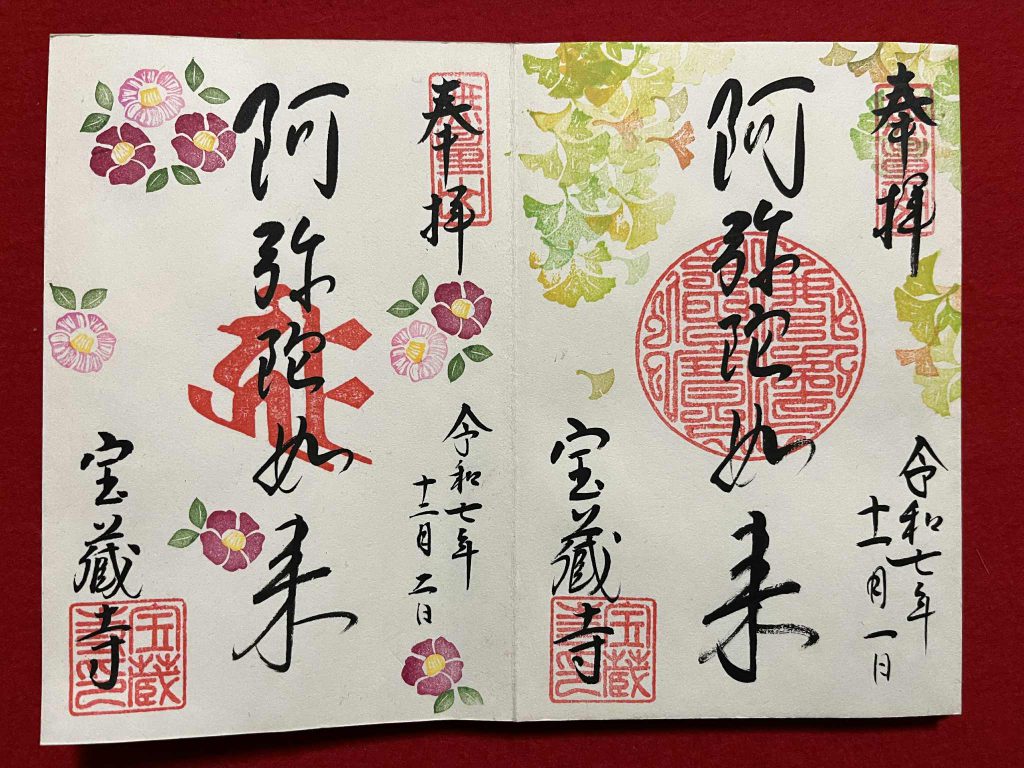 奉拝
阿弥陀如来
令和七年
十一月一日
宝蔵寺
奉拝
阿弥陀如来
令和七年
十二月二日
宝蔵寺